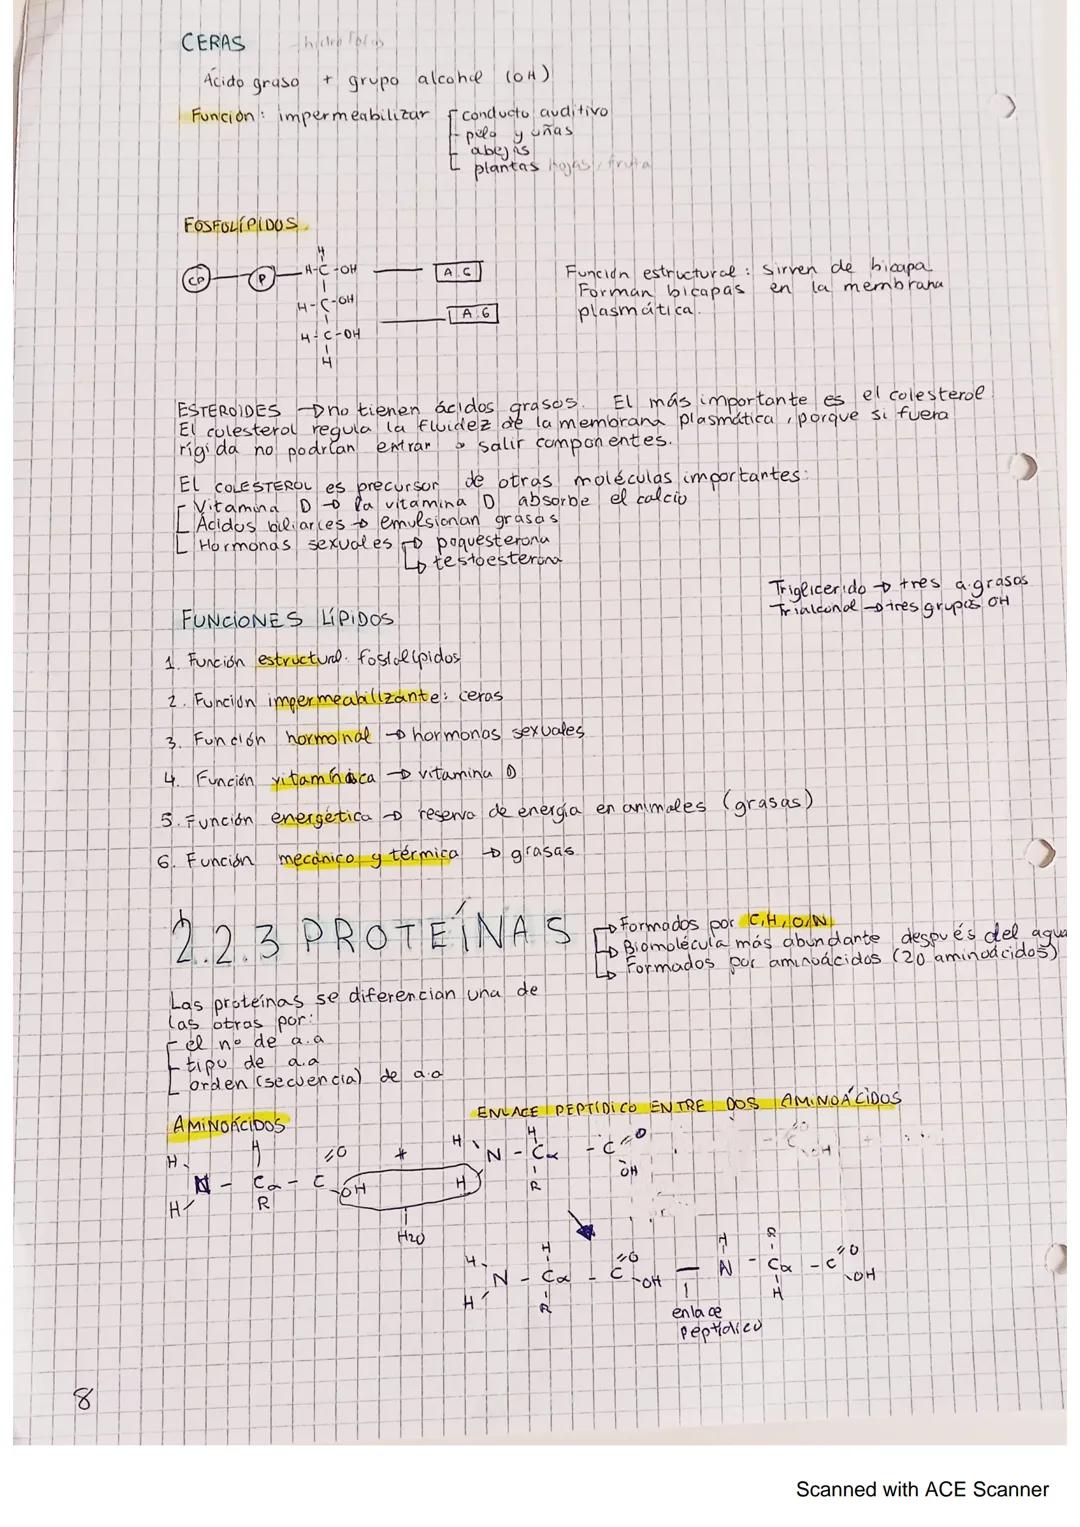 CERAS hidrofobas
Ácido graso + grupo alcohol (OH)
Función: impermeabilizar conducto auditivo
pelo y uñas
abejas
plantas hojas, fruta
FOSFOLÍPIDOS
H
CP P H-C-OH A.G
H-C-OH A.G
H-C-OH
H
Función estructural: sirven de bicapa
Forman bicapas en la membrana
plasmática.
ESTEROIDES → no tienen ácidos grasos. El más importante es el colesterol.
El colesterol regula la fluidez de la membrana plasmática, porque si fuera
rígida no podrían entrar o salir componentes.
El COLESTEROL es precursor de otras moléculas importantes:
Vitamina D → la vitamina D absorbe el calcio
Ácidos biliares → emulsionan grasas
Hormonas sexuales → poquesterona
↳ testoesterona
Triglicerido → tres a.grasos
Trialcohol → tres grupos OH
FUNCIONES LÍPIDOS
1. Función estructural: fosfolípidos
2. Función impermeabilizante: ceras
3. Función hormonal → hormonas sexuales
4. Función vitamínica → vitamina D
5. Función energética → reserva de energía en animales (grasas)
6. Función mecánico y térmica → grasas
2.2.3 PROTEÍNAS
→ Formados por C,H,O,N
→ Biomolécula más abundante después del agua
→ Formados por aminoácidos (20 aminoácidos)
Las proteínas se diferencian una de
las otras por:
el nº de a.a
tipo de a.a
orden (secuencia) de a.a
AMINOÁCIDOS
ENLACE PEPTÍDICO ENTRE DOS AMINOÁCIDOS
H H =O + H H =O
N - Cα - C OH H N - Cα - C OH
H R R
H2O
H H =O H R =O
N - Cα - C OH — N - Cα - C OH
H R H
enlace
peptídico
8
Scanned with ACE Scanner